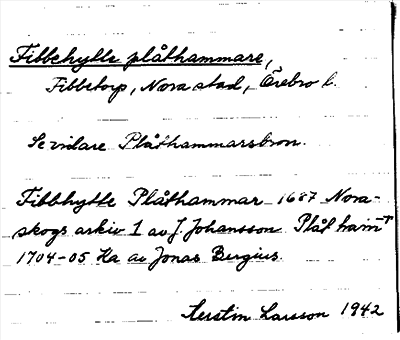 Fibbehytte plåthammare,
Fibbetorp, Nora stad, Örebro l.
Se vidare Plåthammarsbron.
Fibbhytte Plåthammar 1687 Nora-
skogs arkiv 1 av J. Johansson Plåt ham̄
1704-05 Ha av Jonas Bergius.
Kerstin Larsson 1942